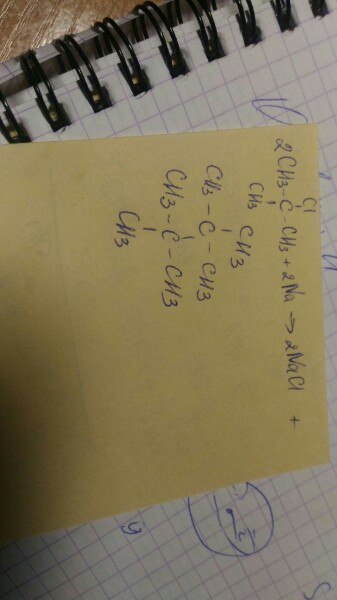 Cl
2CH3-C-CH3 + 2Na → 2NaCl +
CH3
CH3
CH3-C-CH3
CH3-C-CH3
CH3